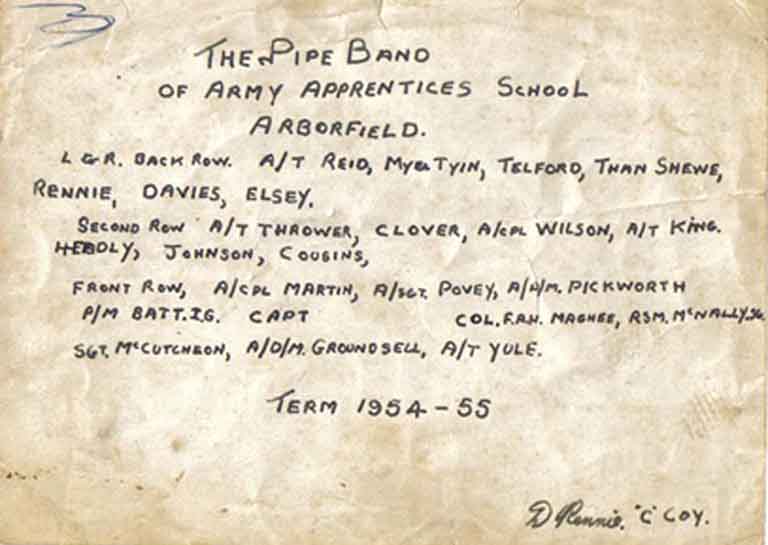 THE PIPE BAND
OF ARMY APPRENTICES SCHOOL
ARBORFIELD.
L & R. BACK ROW. A/T REID, MYA TYIN, TELFORD, THAN SHEWE,
RENNIE, DAVIES, ELSEY.
SECOND ROW A/T THROWER, CLOVER, A/CPL WILSON, A/T KING.
HEDLY, JOHNSON, COUSINS,
FRONT ROW, A/CPL MARTIN, A/SGT. POVEY, PICKWORTH
P/M BATT.I.G. CAPT COL. F.A.H. MAGHEE, RSM. McNALLY.
SGT. McCUTCHEON, A/D/M. GROUNDSELL, A/T YULE.
TERM 1954-55
D Rennie. "C" COY.